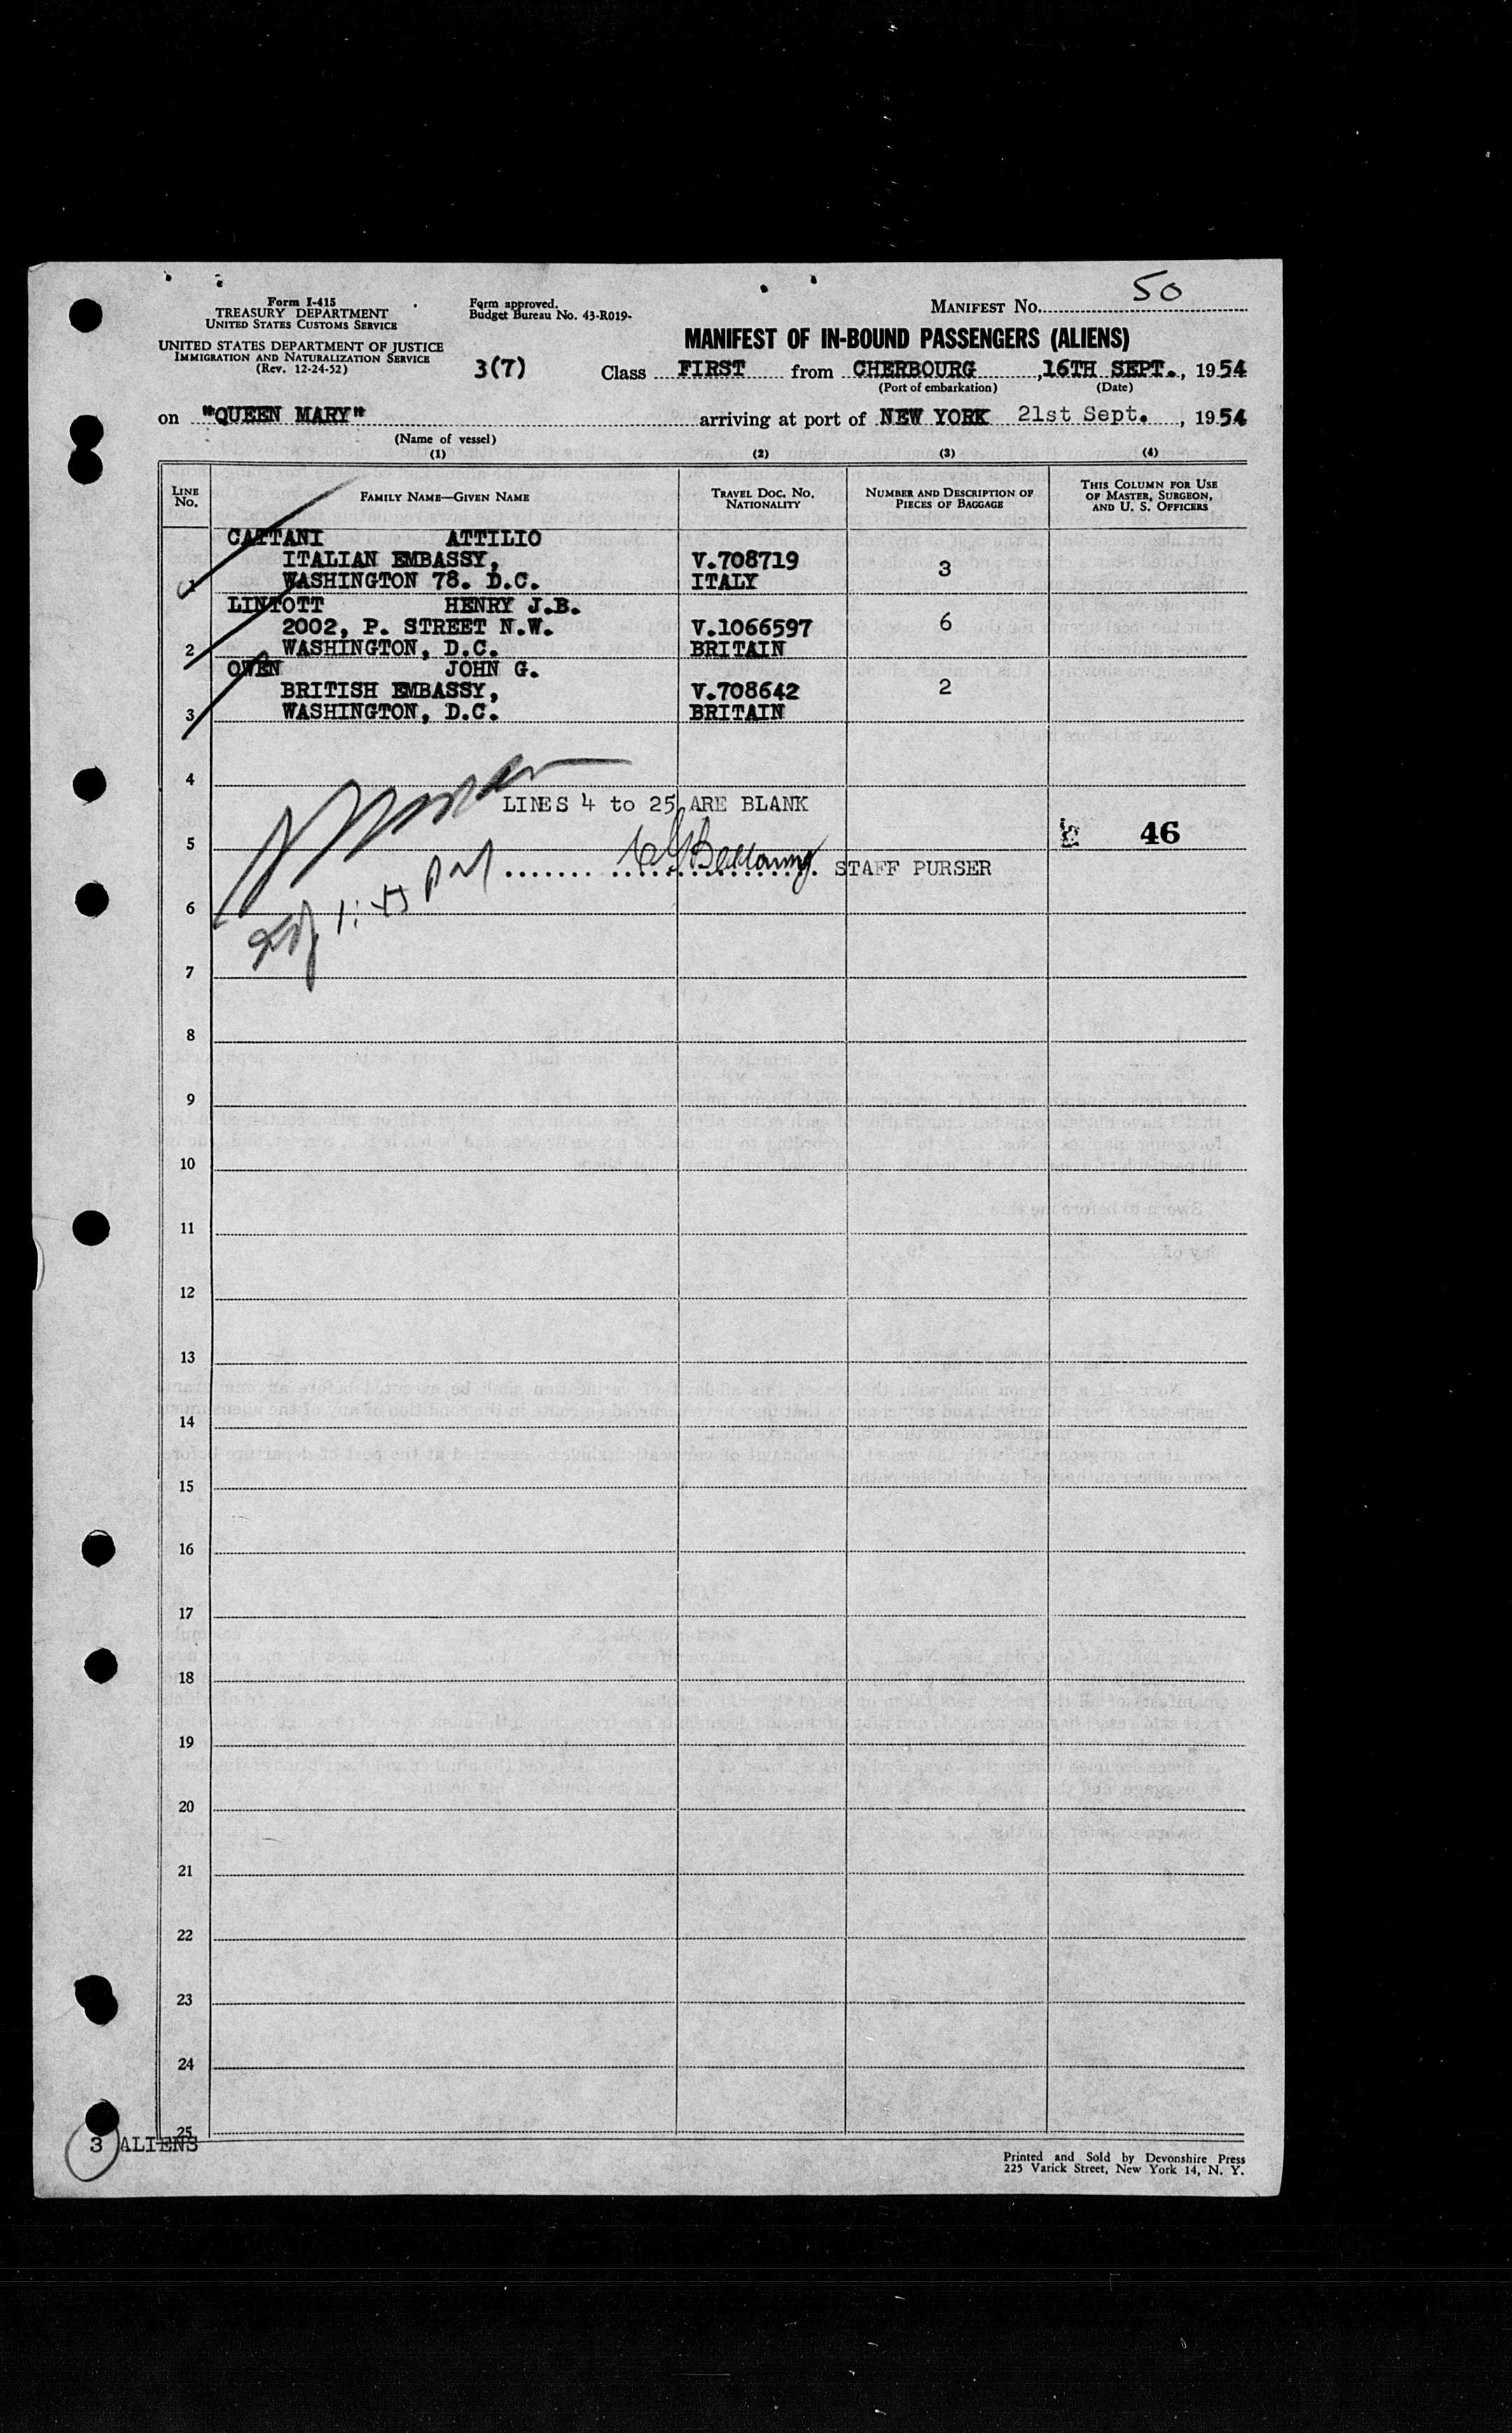 50
Form I-415
TREASURY DEPARTMENT
UNITED STATES CUSTOMS SERVICE
UNITED STATES DEPARTMENT OF JUSTICE
IMMIGRATION AND NATURALIZATION SERVICE
(Rev. 12-24-52)
Form approved.
Budget Bureau No. 43-R019-
MANIFEST No.
MANIFEST OF IN-BOUND PASSENGERS (ALIENS)
3(7) Class FIRST from CHERBOURG, 16TH SEPT., 1954
(Port of embarkation) (Date)
on "QUEEN MARY" arriving at port of NEW YORK 21st Sept., 1954
(Name of vessel)
(1) (2) (3) (4)
LINE No. FAMILY NAME—GIVEN NAME TRAVEL DOC. No. NATIONALITY NUMBER AND DESCRIPTION OF PIECES OF BAGGAGE THIS COLUMN FOR USE OF MASTER, SURGEON, AND U. S. OFFICERS
CATTANI ATTILIO
ITALIAN EMBASSY, V.708719 3
1 WASHINGTON 78. D.C. ITALY
LINTOTT HENRY J.B.
2002, P. STREET N.W. V.1066597 6
2 WASHINGTON, D.C. BRITAIN
OWEN JOHN G.
BRITISH EMBASSY, V.708642 2
3 WASHINGTON, D.C. BRITAIN
4
LINES 4 to 25 ARE BLANK
5 46
STAFF PURSER
6
7
8
9
10
11
12
13
14
15
16
17
18
19
20
21
22
23
24
25
3 ALIENS
Printed and Sold by Devonshire Press
225 Varick Street, New York 14, N. Y.